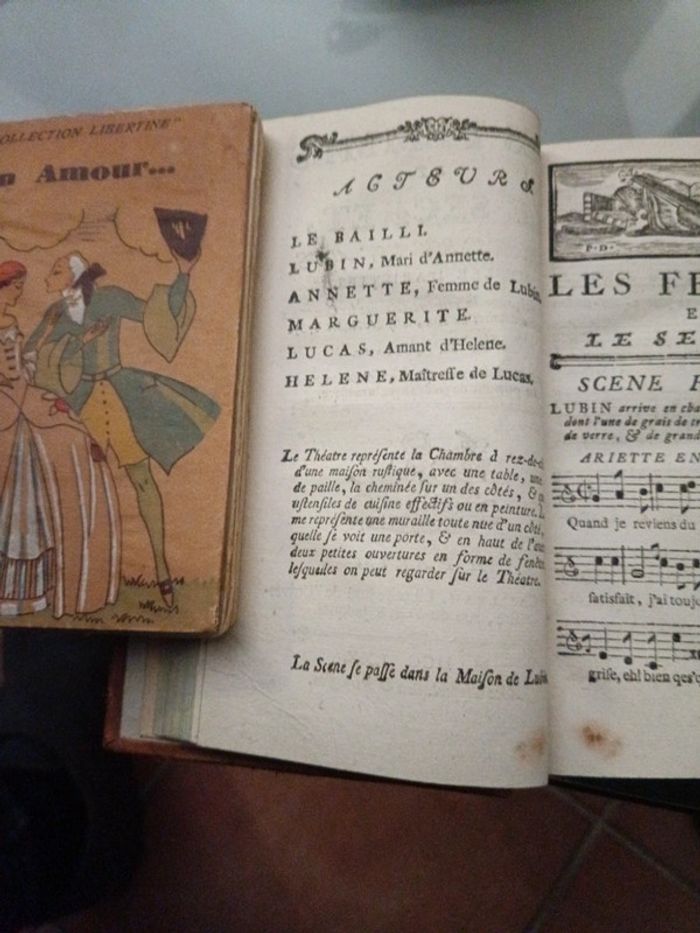 COLLECTION LIBERTINE"
Amour...
ACTEURS.
LE BAILLI.
LUBIN, Mari d'Annette.
ANNETTE, Femme de Lubin.
MARGUERITE.
LUCAS, Amant d'Helene.
HELENE, Maîtreſſe de Lucas.
Le Théatre repréſente la Chambre à rez-de-
d'une maiſon ruſtique, avec une table, une
de paille, la cheminée ſur un des côtés, &
uſtenſiles de cuiſine effectifs ou en peinture.
me repréſente une muraille toute nue d'un côté,
quelle ſe voit une porte, & en haut de
deux petites ouvertures en forme de
leſquelles on peut regarder ſur le Théatre.
La Scene ſe paſſe dans la Maiſon de Lubin
P.D.
LES FE
E
LE SE
SCENE P
LUBIN arrive en
dont l'une de grais de
de verre, & de grand
ARIETTE EN
Quand je reviens du
ſatisfait, j'ai touj
griſe, eh! bien